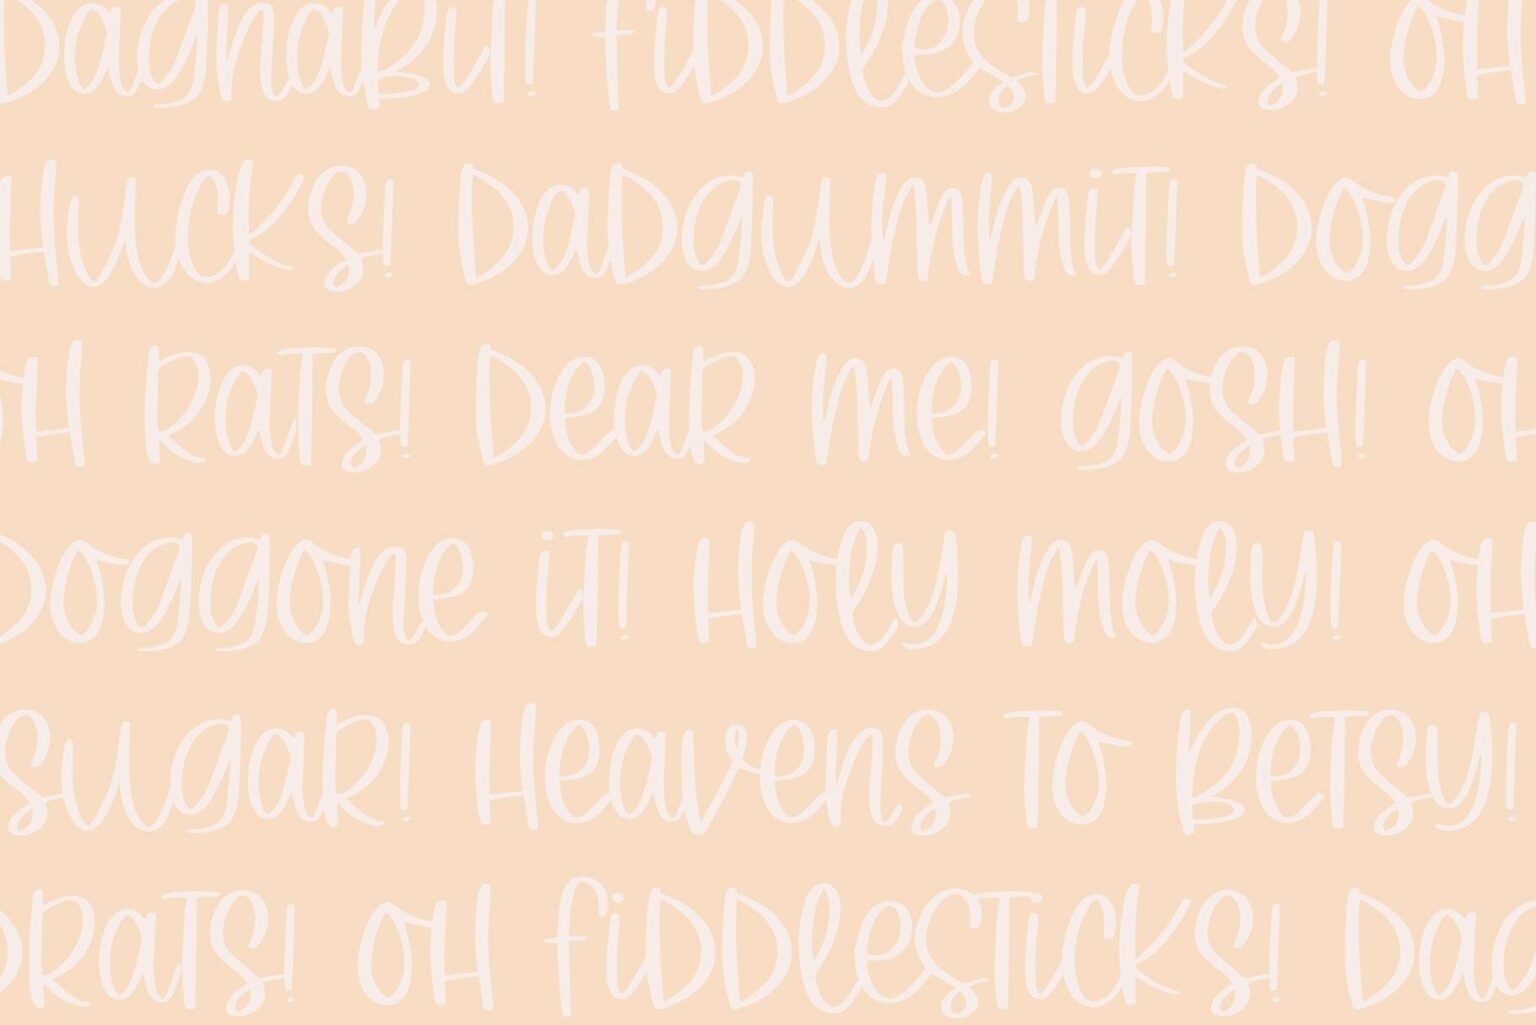 Dagnabit! Fiddlesticks! Oh
hucks! Dadgummit! Dogg
Oh rats! Dear me! Gosh! Oh
Doggone it! Holy moly! Oh
sugar! Heavens to Betsy!
Drats! Oh fiddlesticks! Dag